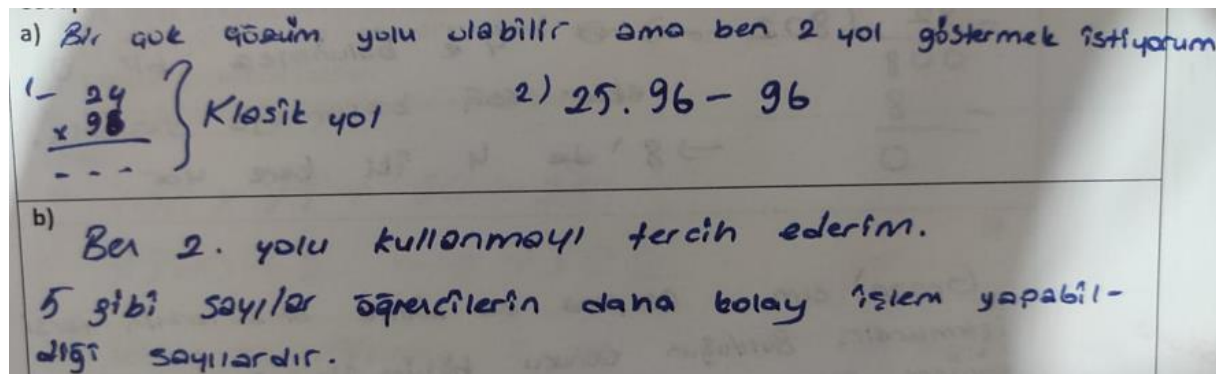 a) Bir çok çözüm yolu olabilir ama ben 2 yol göstermek istiyorum
1- 24
x 96
- - -
} Klasik yol
2) 25.96 - 96
b)
Ben 2. yolu kullanmayı tercih ederim.
5 gibi sayılar öğrencilerin daha kolay işlem yapabil-
diği sayılardır.